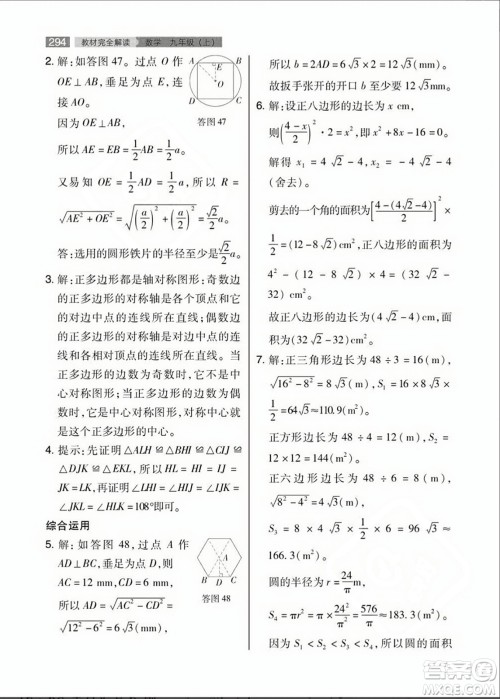 294 教材完全解读 数学 九年级(上)
2. 解:如答图 47。过点 O 作
OE⊥AB,垂足为点 E,连
接 AO。
因为 OE⊥AB,
A E B
O
D C
答图 47
所以 AE=EB=1/2 AB=1/2 a。
又易知 OE=1/2 AD=1/2 a,所以 AO=
√(AE²+OE²)=√((a/2)²+(a/2)²)=√2/2 a。
答:选用的圆形铁片的半径至少是√2/2 a。
3. 解:正多边形都是轴对称图形;奇数边
的正多边形的对称轴是各个顶点和它
的对边中点的连线所在直线;偶数边
的正多边形的对称轴是各个顶点和它
相对顶点的连线所在直线、各边中点
和它相对边中点的连线所在直线;当
正多边形的边数为奇数时,它不是中
心对称图形;当正多边形的边数为偶
数时,它是中心对称图形,对称中心是
这个正多边形的中心。
4. 提示:先证明 △ALB≌△BHC≌△CIJ≌
△DJK≌△EKL,所以 HI=IJ=
JK=LK,再证明∠LHI=∠HIJ=
∠JKL=∠IJK=∠HLK=108°即可。
综合运用
5. 解:如答图 48,过点 A 作
AD⊥BC,垂足为点 D,
所以 AD=√(AC²−CD²)=
√(12²−6²)=6√3(mm),
A
B D C
答图 48
所以 b=2AD=6√3×2=12√3(mm)。
故扳手张开的开口 b 至少要 12√3 mm。
6. 解:设正八边形的边长为 x cm,
则[(4−x)/2]²×2=x²,x²+8x−16=0。
解得 x₁=4√2−4,x₂=−4√2−4
(舍去)。
剪去的一个角的面积为[(4−(4√2−4))/2]²×
1/2=(12−8√2)cm²,正八边形的面积为
4²−(12−8√2)×4=16−48+
32√2=(32√2−32)cm²。
故正八边形的边长为(4√2−4)cm,面积
为(32√2−32)cm²。
7. 解:正三角形边长为 48÷3=16(m),
√(16²−8²)=8√3(m),S₁=16×8√3×
1/2=64√3≈110.9(m²)。
正方形边长为 48÷4=12(m),S₂=
12×12=144(m²)。
正六边形边长为 48÷6=8(m),
√(8²−4²)=4√3(m),
S₃=8×4√3×1/2×6=96√3≈
166.3(m²)。
圆的半径为 24/π m,
S₄=πr²=π(24/π)²=576/π≈183.3(m²)。
因为 S₁<S₂<S₃<S₄,所以圆的面积